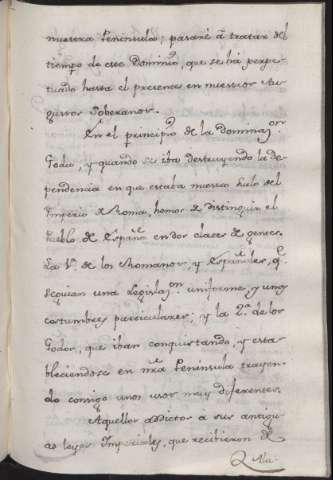 nuestra Peninsula; pasaré á tratar del
tiempo de este Dominio, que se há perpe-
tuado hasta el presente en nuestros Au-
gustos Soberanos.
En el principio de la Dominaz.on
Goda, y quando se iba destruyendo la de-
pendencia en que estaba nuestro suelo del
Imperio de Roma, hemos de distinguir el
Pueblo de España en dos clases de gentes.
La 1.a de los Romanos, y Españoles, q.e
seguian una Legislaz.on uniforme, y unas
costumbres particulares; y la 2.a de los
Godos, que iban conquistando, y esta-
bleciendose en nr̃a Peninsula trayen-
do consigo unos usos muy diferentes.
Aquellos adictos a sus antigu-
as leyes Imperiales, que recibieron de